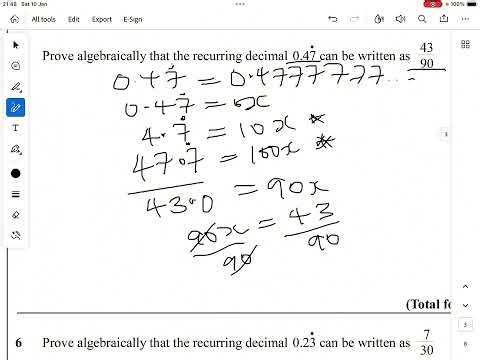 21:48 Sat 10 Jan
100%
All tools Edit Convert E-Sign
Prove algebraically that the recurring decimal 0.47̇ can be written as 43/90
0.47̇ = 0.4777777...
0.47̇ = x
4.7̇ = 10x *
47.7̇ = 100x *
43.0 = 90x
90x/90 = 43/90
(Total fo
6 Prove algebraically that the recurring decimal 0.23̇ can be written as 7/30